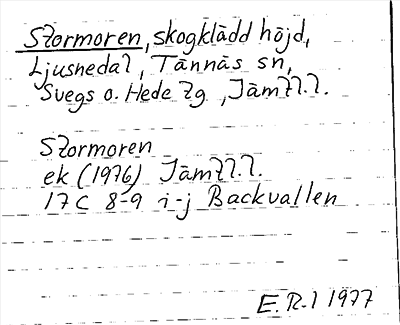 Stormoren, skogklädd höjd,
Ljusnedal, Tännäs sn,
Svegs o. Hede tg, Jämtl.l.
Stormoren
ek (1976) Jämtl.l.
17C 8-9 i-j Backvallen
E.R-l 1977